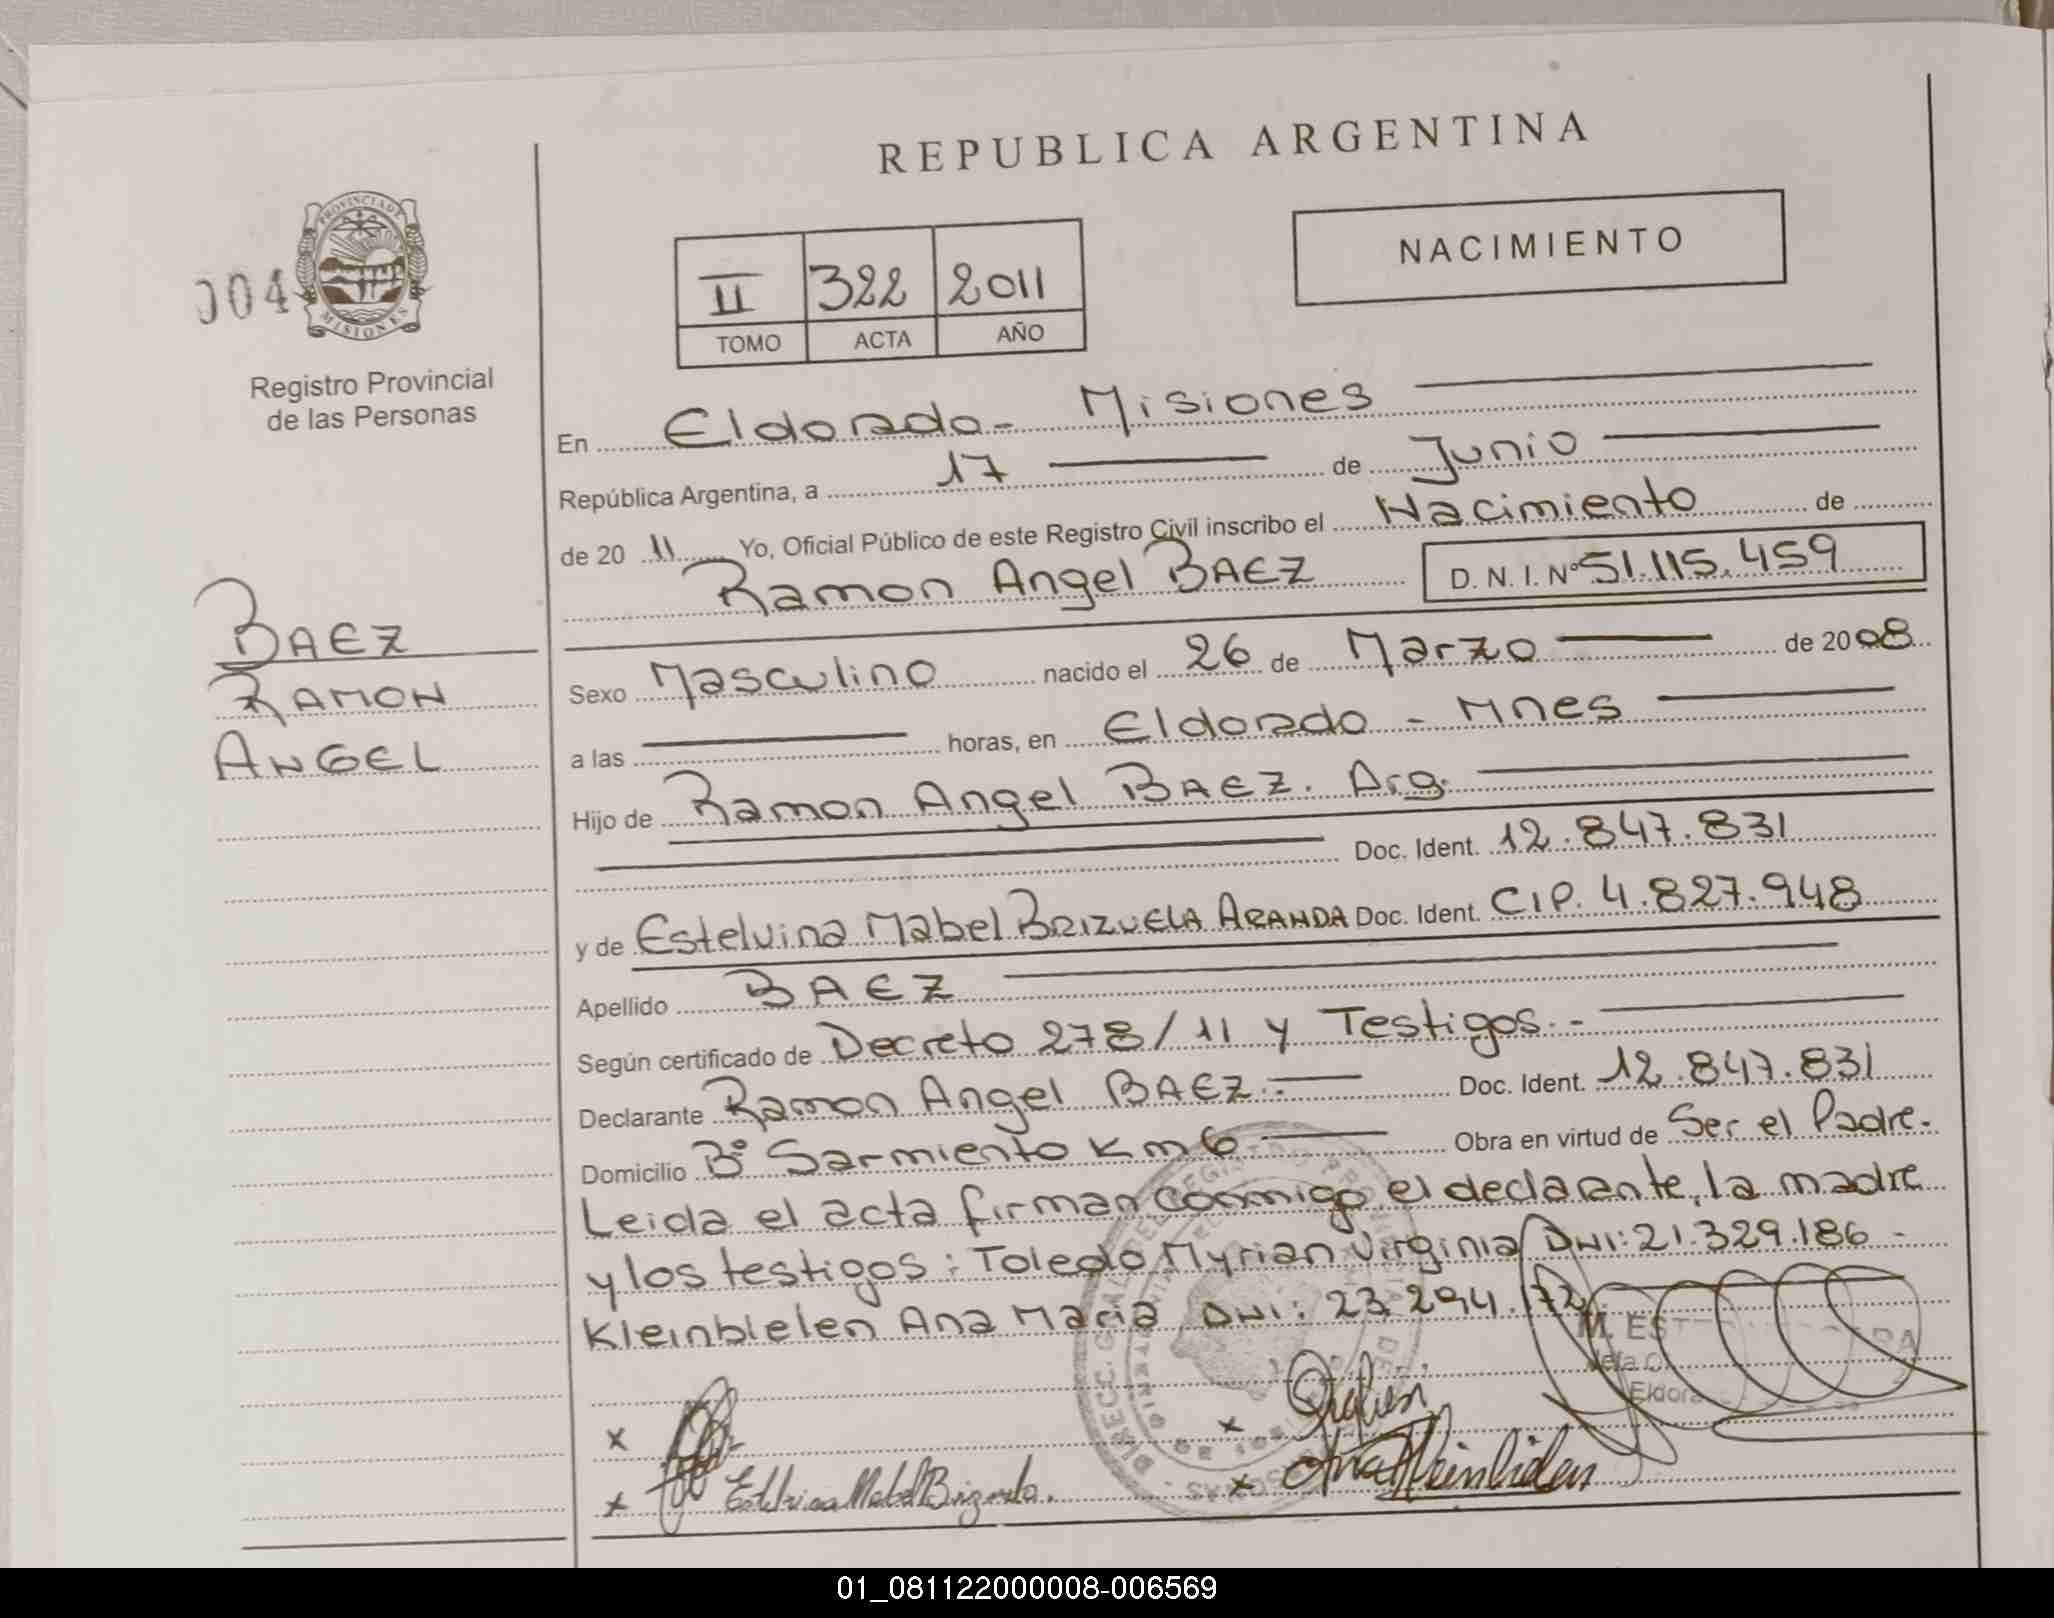 REPUBLICA ARGENTINA
NACIMIENTO
II 322 2011
TOMO ACTA AÑO
004
PROVINCIA DE MISIONES
Registro Provincial
de las Personas
BAEZ
RAMON
ANGEL
En Eldorado - Misiones
República Argentina, a 17 de Junio
de 20 11 Yo, Oficial Público de este Registro Civil inscribo el Nacimiento de
Ramon Angel BAEZ D.N.I. Nº 51.115.459
Sexo Masculino nacido el 26 de Marzo de 2008
a las horas, en Eldorado - Mnes
Hijo de Ramon Angel BAEZ. Arg.
Doc. Ident. 12.847.831
y de Estelvina Mabel BRIZUELA ARANDA Doc. Ident. CIP. 4.827.948
Apellido BAEZ
Según certificado de Decreto 278/11 y Testigos.-
Declarante Ramon Angel BAEZ.- Doc. Ident. 12.847.831
Domicilio Bº Sarmiento Km 6 Obra en virtud de Ser el Padre.
Leida el acta firman conmigo el declarante, la madre
y los testigos: Toledo Myrian Virginia DNI: 21.329.186 -
Kleinbielen Ana Maria DNI: 23.294.172
M. EST
Jefa O
Eldora
x
x
x Estelvina Mabel Brizuela.
x Ana Kleinbielen
01_081122000008-006569